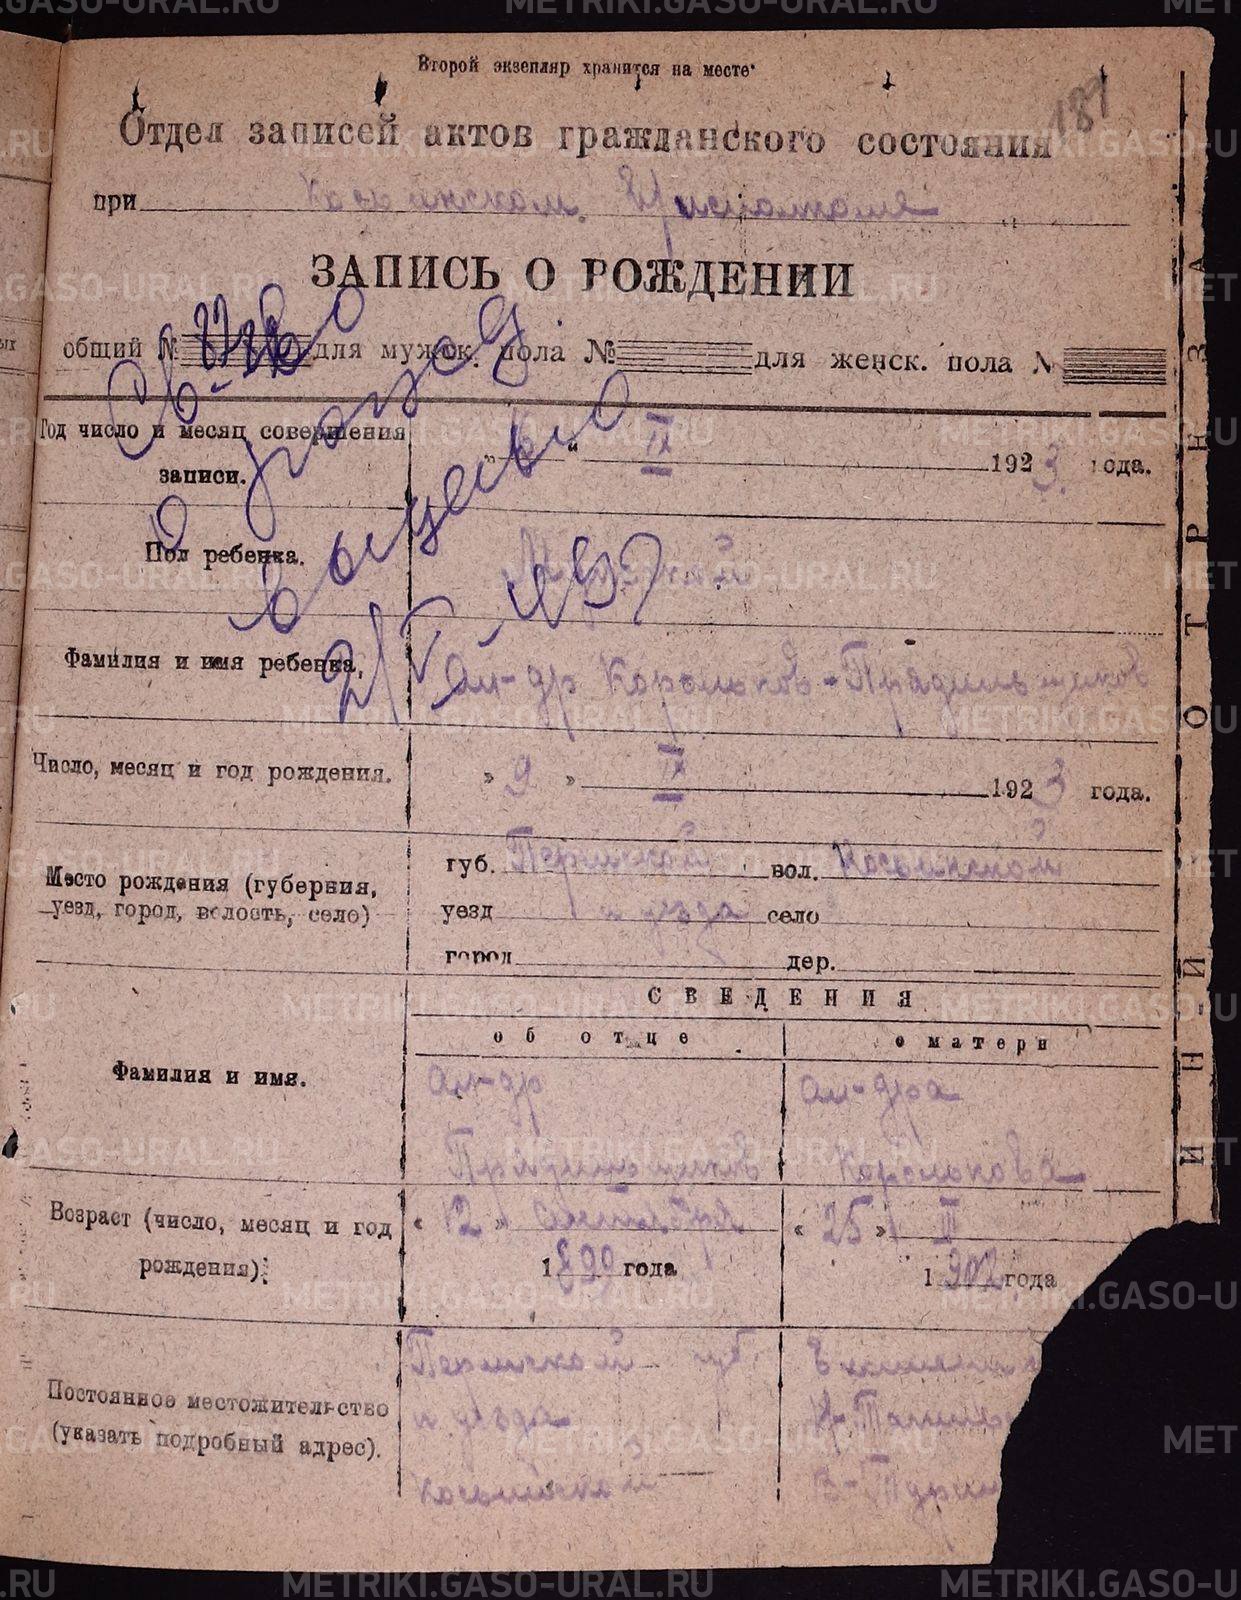 Второй экзепляр хранится на месте
187
Отдел записей актов гражданского состояния
при Косьинском Исполкоме
ЗАПИСЬ О РОЖДЕНИИ
общий № для мужск. пола № для женск. пола №
Св-во
о рожд.
выдано
2/V-1957
Год число и месяц совершения записи. " " IX 1923 года.
Пол ребенка. Мужской
Фамилия и имя ребенка, Ал-др Корольков-Прядильщиков
Число, месяц и год рождения. » 9 » IX 1923 года.
Место рождения (губерния, уезд, город, волость, село)
губ. Пермской вол. Косьинской
уезд и уезда село
город дер.
СВЕДЕНИЯ
об отце о матери
Фамилия и имя.
Ал-др Ал-дра
Прядильщиков Королькова
Возраст (число, месяц и год рождения).
« 12 » сентября « 25 » III
1899 года 1902 года
Постоянное местожительство (указать подробный адрес).
Пермской губ.
и уезда Н-Таги
Косьинской В-Тури
ИНИЙ ОТРЕЗА
METRIKI.GASO-URAL.RU